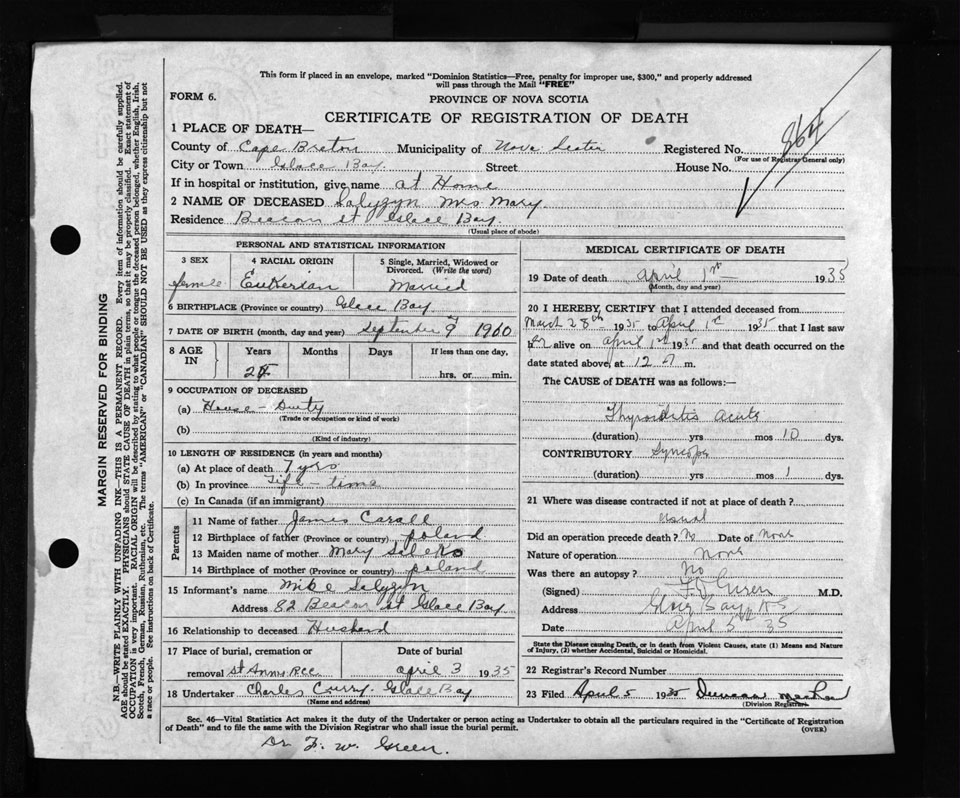 This form if placed in an envelope, marked "Dominion Statistics—Free, penalty for improper use, $300," and properly addressed
will pass through the Mail "FREE"
FORM 6.
PROVINCE OF NOVA SCOTIA
CERTIFICATE OF REGISTRATION OF DEATH
864
1 PLACE OF DEATH—
County of Cape Breton Municipality of Nova Scotia Registered No.
(For use of Registrar General only)
City or Town Glace Bay Street House No.
If in hospital or institution, give name at Home
2 NAME OF DECEASED Salyzyn Mrs Mary
Residence Beacon st Glace Bay.
(Usual place of abode)
MARGIN RESERVED FOR BINDING
N.B.—WRITE PLAINLY WITH UNFADING INK—THIS IS A PERMANENT RECORD. Every item of information should be carefully supplied.
AGE should be stated EXACTLY. PHYSICIANS should STATE CAUSE OF DEATH in plain terms, so that it may be properly classified. Exact statement of
OCCUPATION is very important. RACIAL ORIGIN will be described by stating to what people or tongue the deceased person belonged, whether English, Irish,
Scotch, French, German, Russian, Ruthenian, etc. The terms "AMERICAN" or "CANADIAN" SHOULD NOT BE USED as they express citizenship but not
a race or people. See instructions on back of Certificate.
PERSONAL AND STATISTICAL INFORMATION
3 SEX 4 RACIAL ORIGIN 5 Single, Married, Widowed or
Divorced. (Write the word)
female Eukerian Married
6 BIRTHPLACE (Province or country) Glace Bay
7 DATE OF BIRTH (month, day and year) September 9 1900
8 AGE
IN
Years Months Days If less than one day,
hrs. or min.
9 OCCUPATION OF DECEASED
(a) House-Duty
(Trade or occupation or kind of work)
(b)
(Kind of industry)
10 LENGTH OF RESIDENCE (in years and months)
(a) At place of death 7 yrs
(b) In province Life-time
(c) In Canada (if an immigrant)
Parents
11 Name of father James Carall
12 Birthplace of father (Province or country) poland
13 Maiden name of mother Mary
14 Birthplace of mother (Province or country) poland
15 Informant's name Mike Salyzyn
Address 82 Beacon st Glace Bay.
16 Relationship to deceased Husband
17 Place of burial, cremation or Date of burial
removal st Anns R.C.C april 3 1935
18 Undertaker Charles Curry. Glace Bay
(Name and address)
MEDICAL CERTIFICATE OF DEATH
19 Date of death April 1st 1935
(Month, day and year)
20 I HEREBY CERTIFY that I attended deceased from
March 28th 1935 to April 1st 1935 that I last saw
her alive on April 1st 1935 and that death occurred on the
date stated above, at 12 m.
The CAUSE of DEATH was as follows:—
Thyroiditis acute
(duration) yrs mos 10 dys.
CONTRIBUTORY Syncope
(duration) yrs mos 1 dys.
21 Where was disease contracted if not at place of death?
usual
Did an operation precede death? No Date of None
Nature of operation None
Was there an autopsy? No
(Signed) F.W. Green M.D.
Address Glace Bay N.S
Date April 3rd 35
State the Disease causing Death, or in death from Violent Causes, state (1) Means and Nature
of Injury, (2) whether Accidental, Suicidal or Homicidal.
22 Registrar's Record Number
23 Filed April 5 1935 Duncan
(Division Registrar)
Sec. 46—Vital Statistics Act makes it the duty of the Undertaker or person acting as Undertaker to obtain all the particulars required in the "Certificate of Registration
of Death" and to file the same with the Division Registrar who shall issue the burial permit.
(OVER)
Dr F. W. Green.